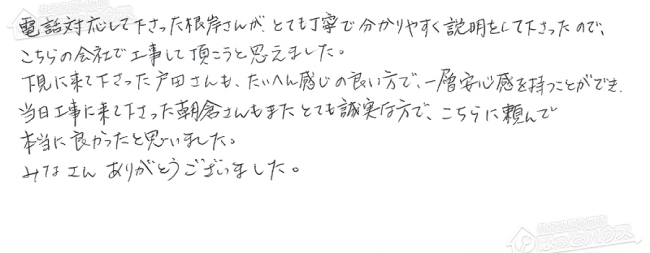 電話対応して下さった根岸さんが、とても丁寧で分かりやすく説明をして下さったので、
こちらの会社で工事して頂こうと思えました。
下見に来て下さった戸田さんも、たいへん感じの良い方で、一層安心感を持つことができ、
当日工事に来て下さった朝倉さんもまたとても誠実な方で、こちらに頼んで
本当に良かったと思いました。
みなさん ありがとうございました。